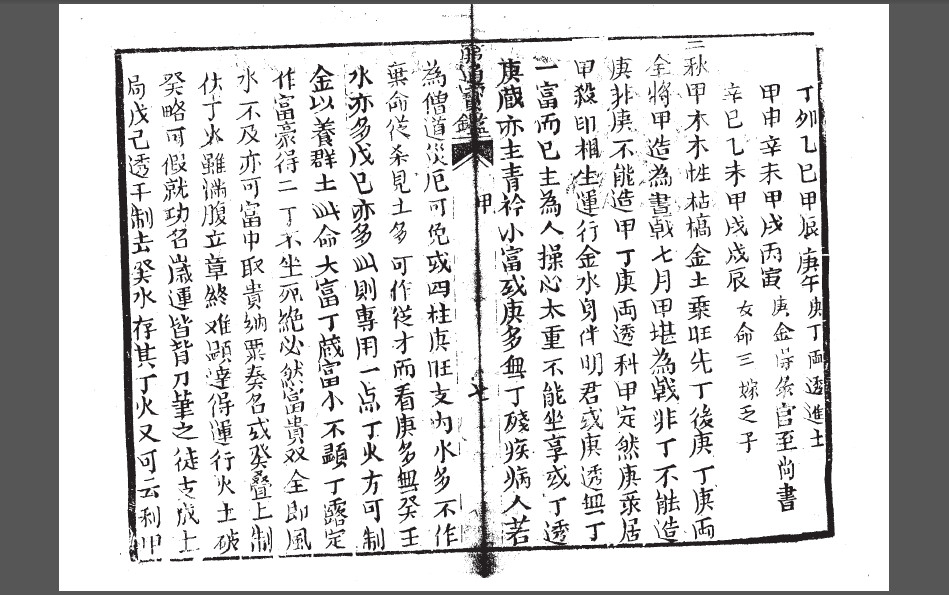 丁卯乙巳甲辰庚午庚丁両透進士
甲申辛未甲戌丙寅庚金得候官至尚書
辛巳乙未甲戌戊辰女命三嫁乏子
三秋甲木木性枯槁金土乘旺先丁後庚丁庚両
全將甲造為畫戟七月甲堪為戟非丁不能造
庚非庚不能造甲丁庚両透科甲定然庚祿居
甲殺印相生運行金水身伴明君或庚透無丁
一富而已主為人操心太重不能坐享或丁透
庚蔵亦主青衿小富或庚多無丁殘疾病人若
甲
七
為僧道災厄可免或四柱庚旺支内水多不作
棄命從杀見土多可作從才而看庚多無癸壬
水亦多戊已亦多此則專用一点丁火方可制
金以養群土此命大富丁蔵富小不顕丁露定
作富豪得二丁不坐死絶必然富貴双全即風
水不及亦可富中取貴納粟奏名或癸疊上制
伏丁火雖滿腹立章終难顕達得運行火土破
癸略可假就功名嵗運皆背刀筆之徒支成土
局戊己透干制去癸水存其丁火又可云利中